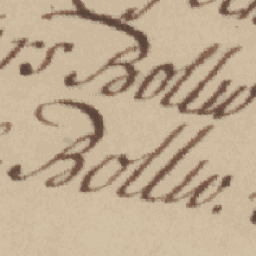 rs Bollw
Bollw.